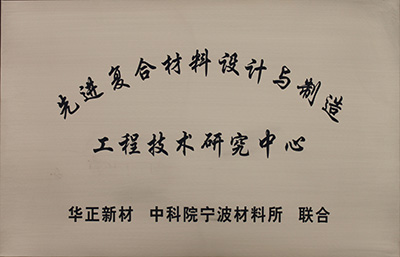 先进复合材料设计与制造
工程技术研究中心
华正新材 中科院宁波材料所 联合